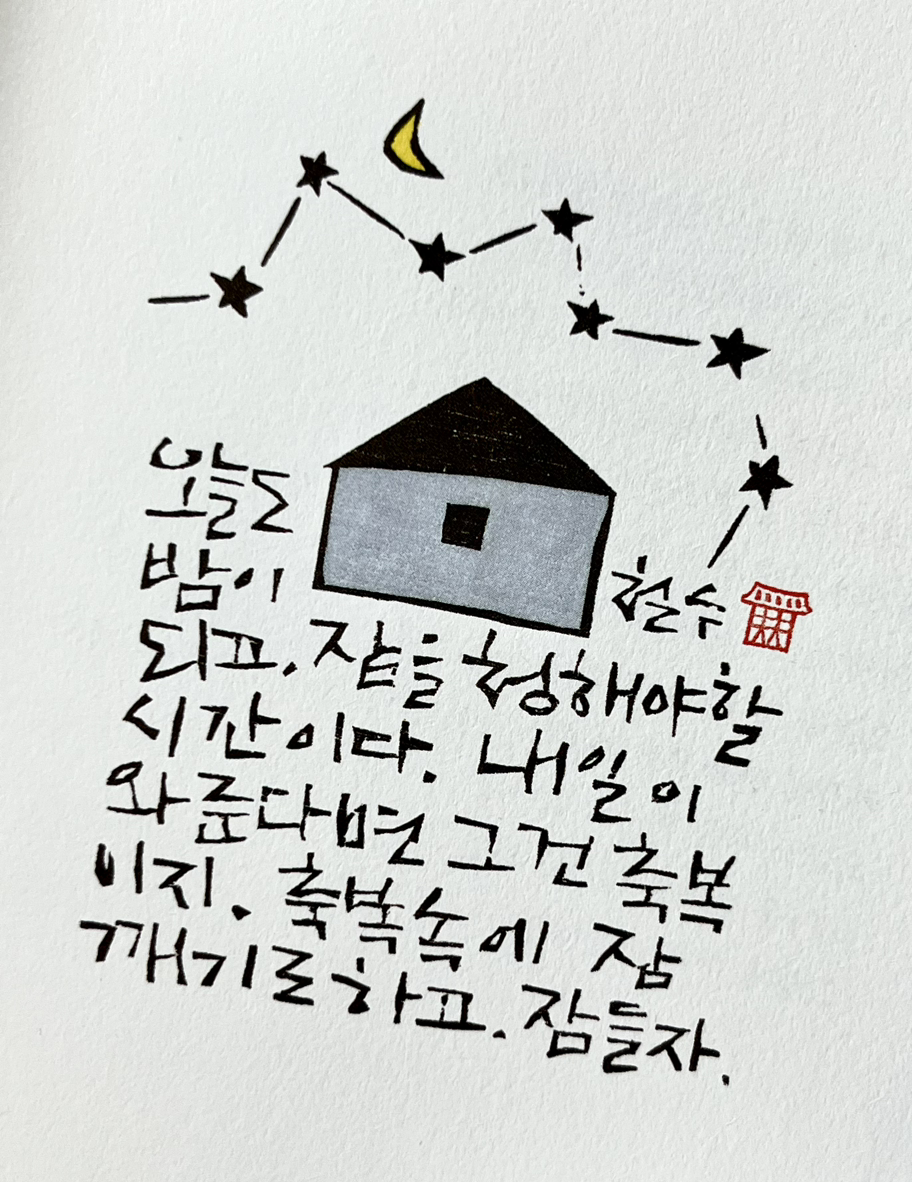 오늘도
밤이
철수
되고, 잠을 청해야 할
시간이다. 내일이
와 준다면 그건 축복
이지. 축복 속에 잠
깨기로 하고. 잠들자.